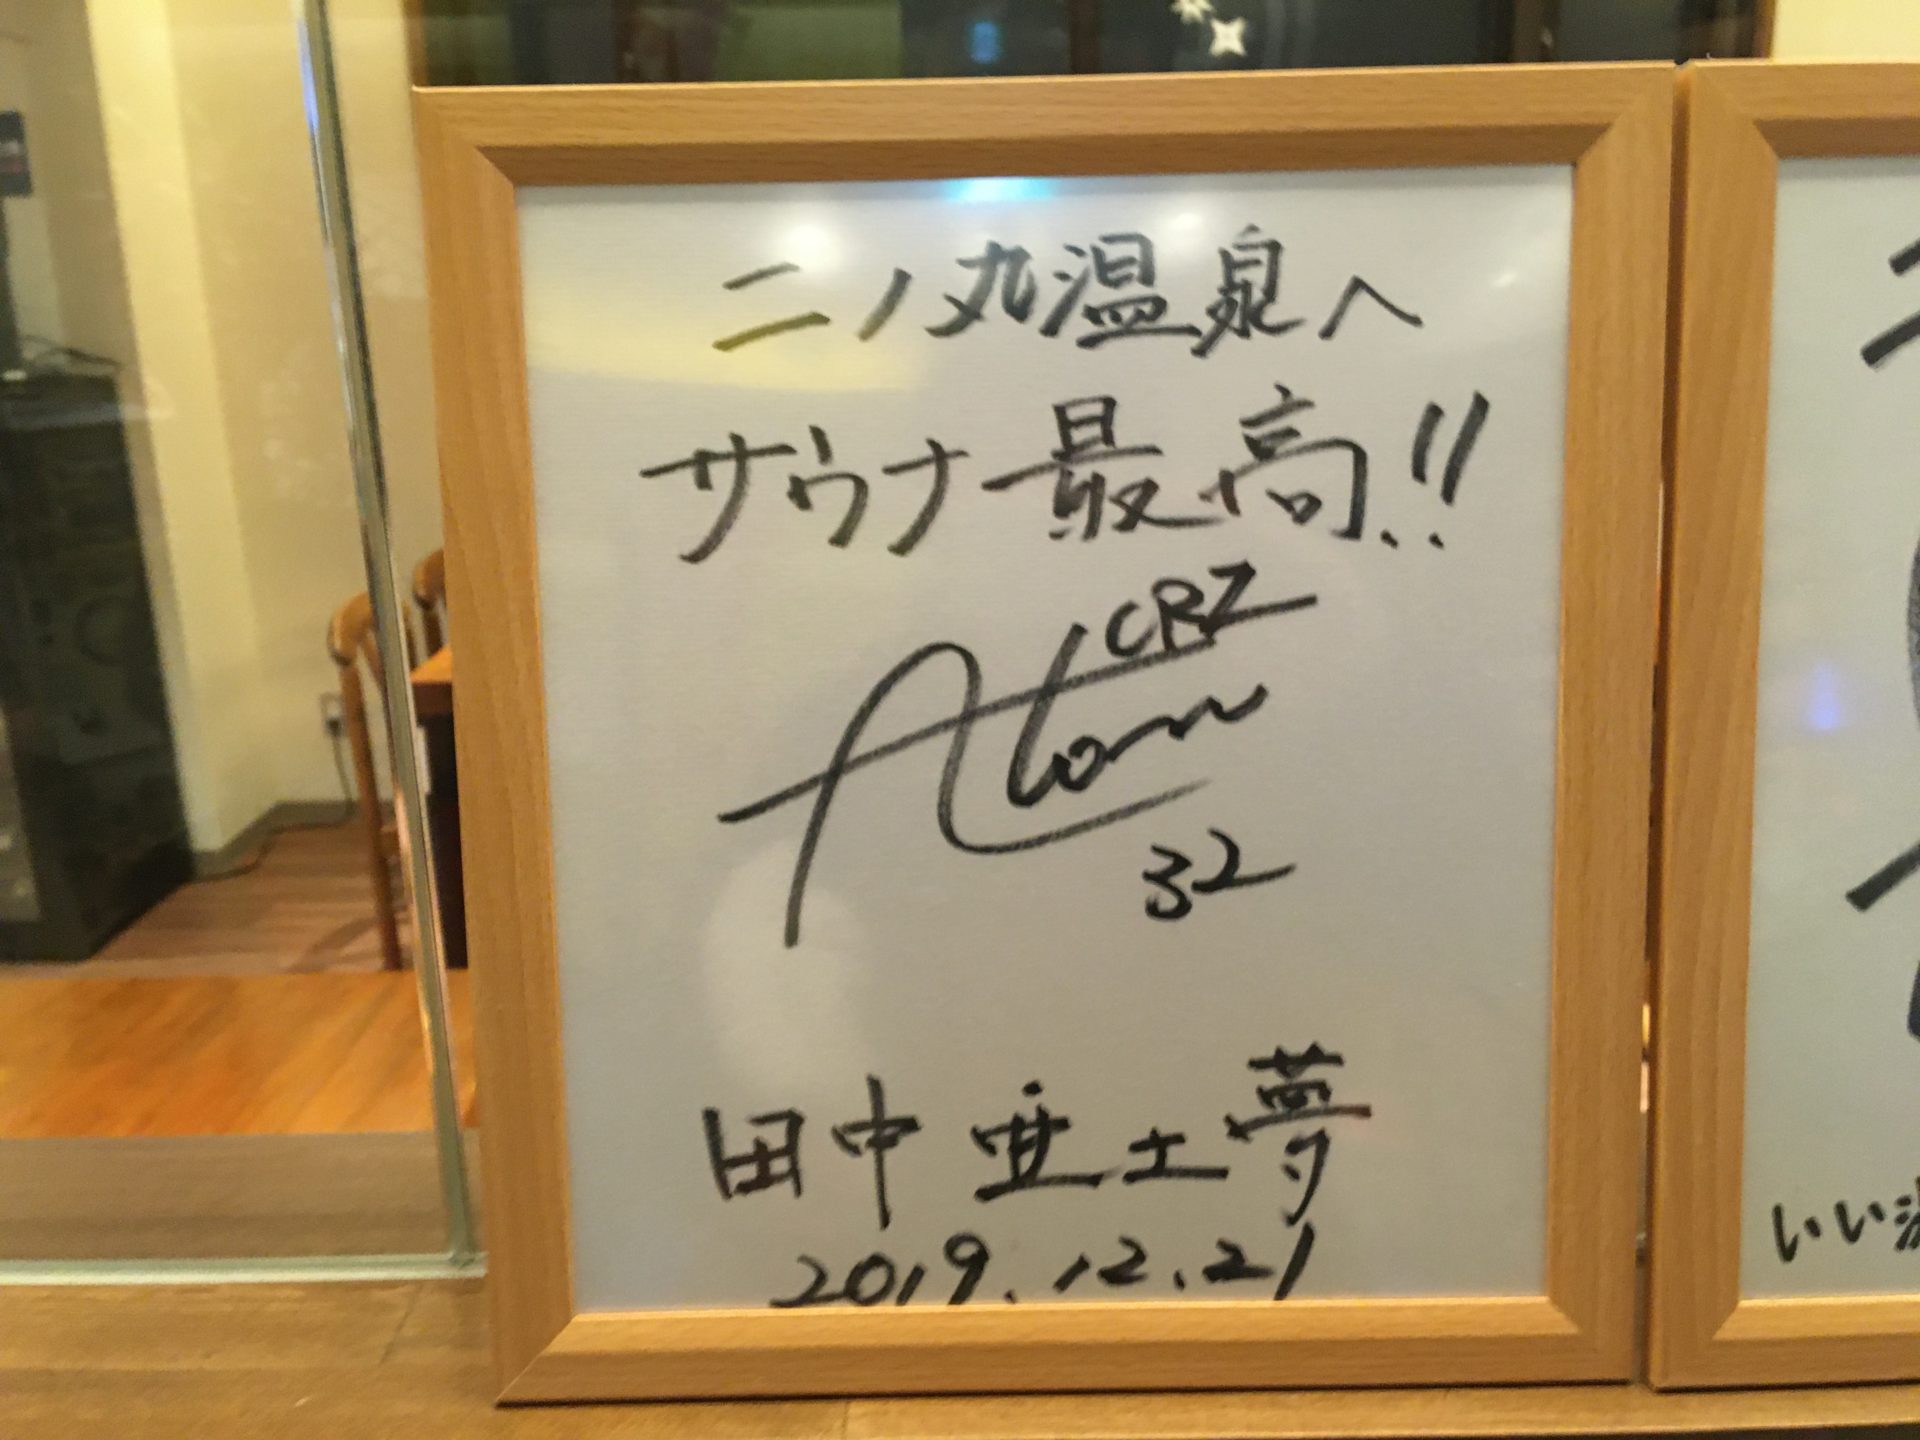 ニノ丸温泉へ
サウナ最高!!
CRZ
Atom
32
田中亜土夢
2019.12.21
いい湯